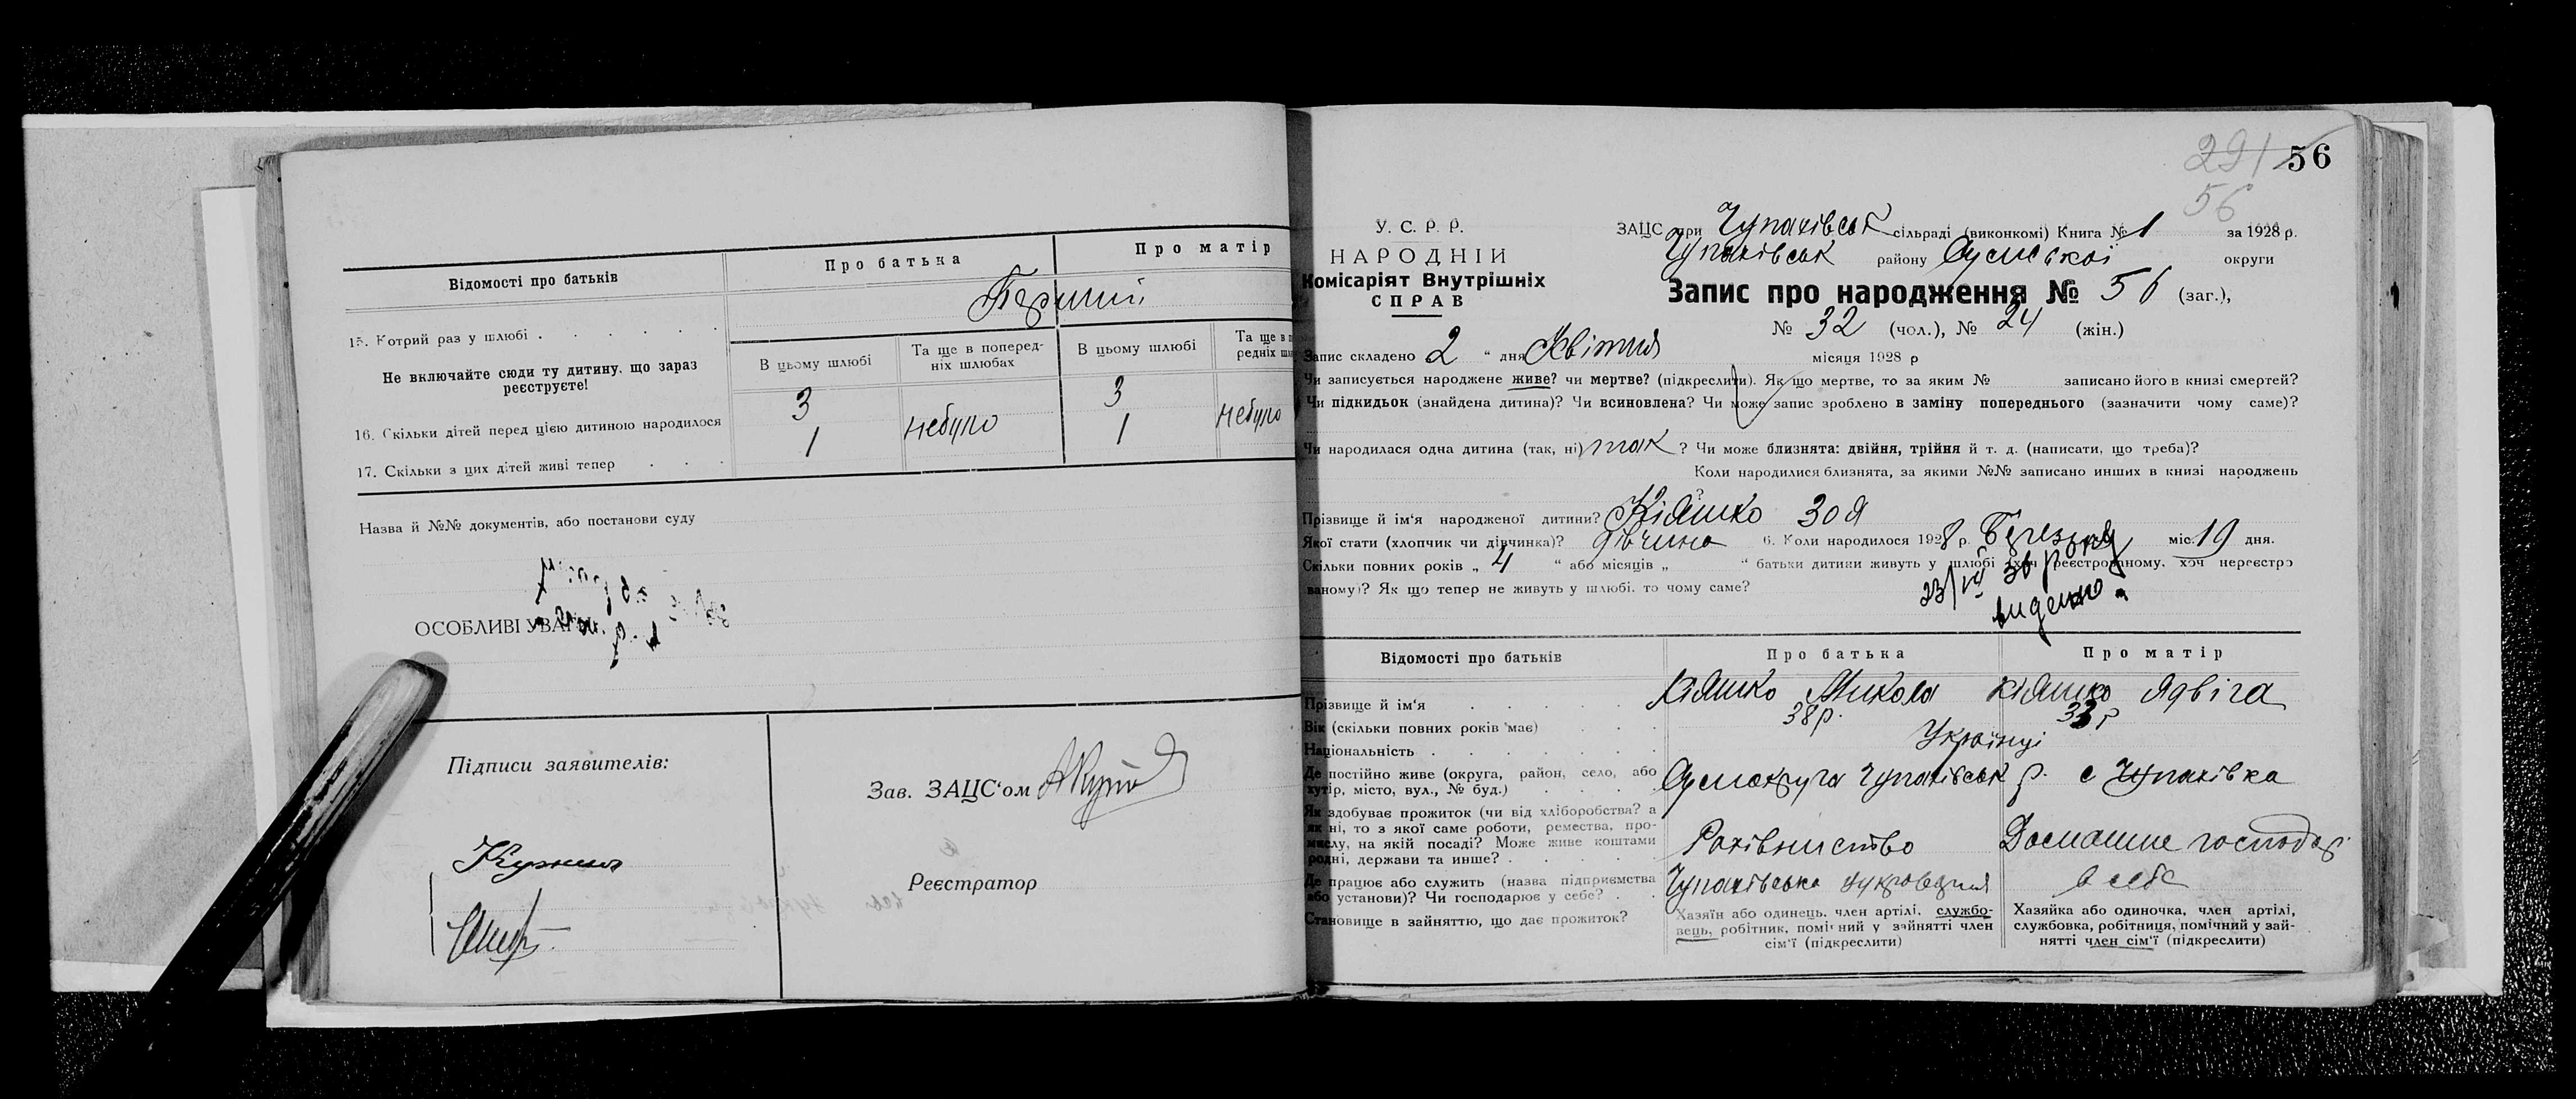 Відомості про батьків
Про батька
Про матір
15. Котрий раз у шлюбі
Перший
Не включайте сюди ту дитину, що зараз реєструєте!
В цьому шлюбі
Та ще в поперед-
ніх шлюбах
В цьому шлюбі
Та ще в п
редніх шл
16. Скільки дітей перед цією дитиною народилося
3
небуло
3
небуло
17. Скільки з цих дітей живі тепер
1
1
Назва й №№ документів, або постанови суду
ОСОБЛИВІ УВАГИ
Підписи заявителів:
Зав. ЗАЦС'ом
Реєстратор
291 56
56
У. С. Р. Р.
НАРОДНІЙ
Комісаріят Внутрішніх
СПРАВ
ЗАЦС при Чупахівськ сільраді (виконкомі) Книга № 1 за 1928 р.
Чупахівськ району Сумської округи
Запис про народження № 56 (заг.),
№ 32 (чол.), № 24 (жін.)
Запис складено 2 " дня Квітня місяця 1928 р
Чи записується народжене живе? чи мертве? (підкреслити). Як що мертве, то за яким № записано його в книзі смертей?
Чи підкидьок (знайдена дитина)? Чи всиновлена? Чи може запис зроблено в заміну попереднього (зазначити чому саме)?
Чи народилася одна дитина (так, ні) так ? Чи може близнята: двійня, трійня й т. д. (написати, що треба)?
Коли народилися близнята, за якими №№ записано инших в книзі народжень
?
Прізвище й ім'я народженої дитини? Кіяшко Зоя
Якої стати (хлопчик чи дівчинка)? дівчина 6. Коли народилося 1928 р. Березня міс. 19 дня.
Скільки повних років „ 4 " або місяців „ " батьки дитини живуть у шлюбі (хоч реєстрованому, хоч нереєстро
ваному)? Як що тепер не живуть у шлюбі, то чому саме?
23/VII 36 року
видано
Відомості про батьків
Про батька
Про матір
Прізвище й ім'я
Кіяшко Микола
Кіяшко Ядвіга
Вік (скільки повних років має)
38 р.
33 р
Національність
Українці
Де постійно живе (округа, район, село, або
хутір, місто, вул., № буд.)
Сумокруга Чупахівськ р. с Чупахівка
Як здобуває прожиток (чи від хліборобства? а
як ні, то з якої саме роботи, ремества, про-
мислу, на якій посаді? Може живе коштами
родні, держави та инше?
Рахівництво
Домашне господар
Де працює або служить (назва підприємства
або установи)? Чи господарює у себе?
Чупахівська цукроварня
в себе
Становище в зайняттю, що дає прожиток?
Хазяїн або одинець, член артілі, службо-
вець, робітник, помічний у зайнятті член
сім'ї (підкреслити)
Хазяйка або одиночка, член артілі,
службовка, робітниця, помічний у зай-
нятті член сім'ї (підкреслити)